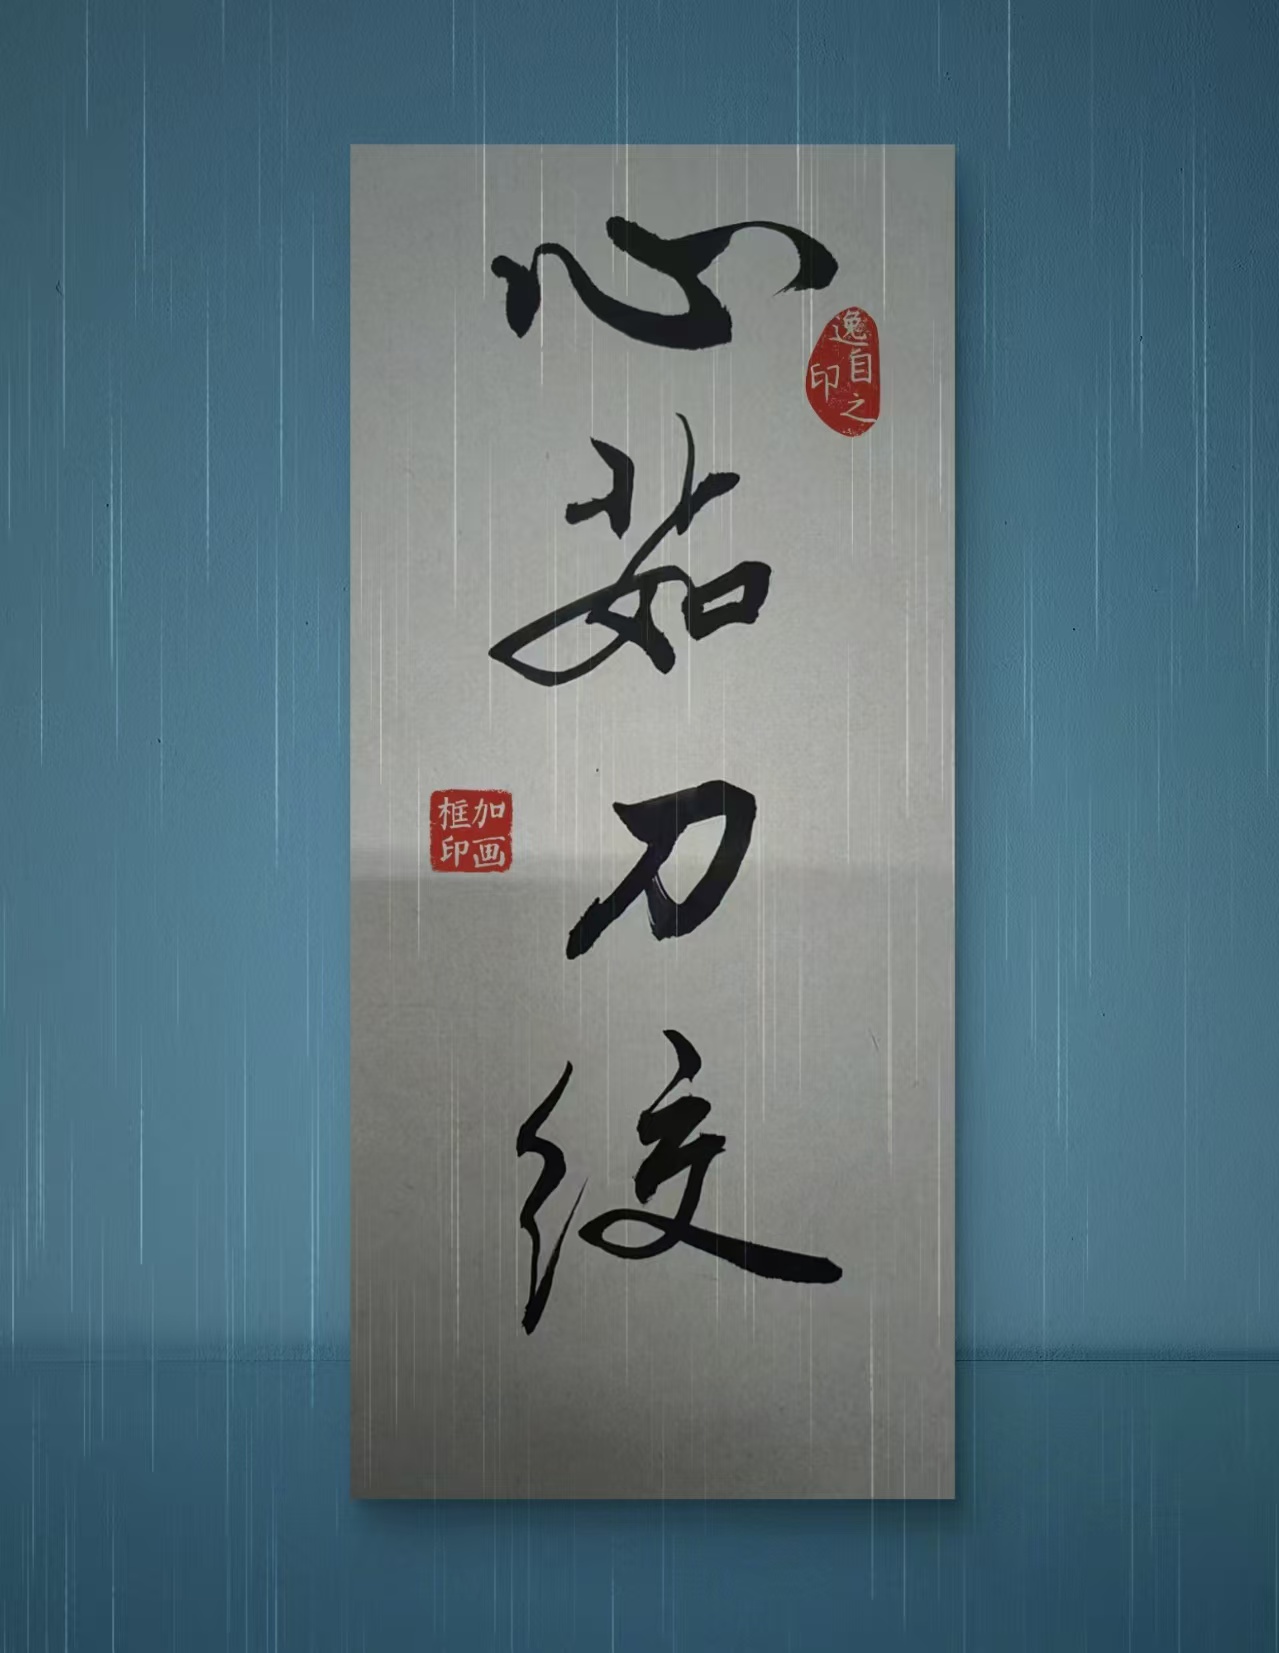 心茹刀绞
逸自之印
加画框印